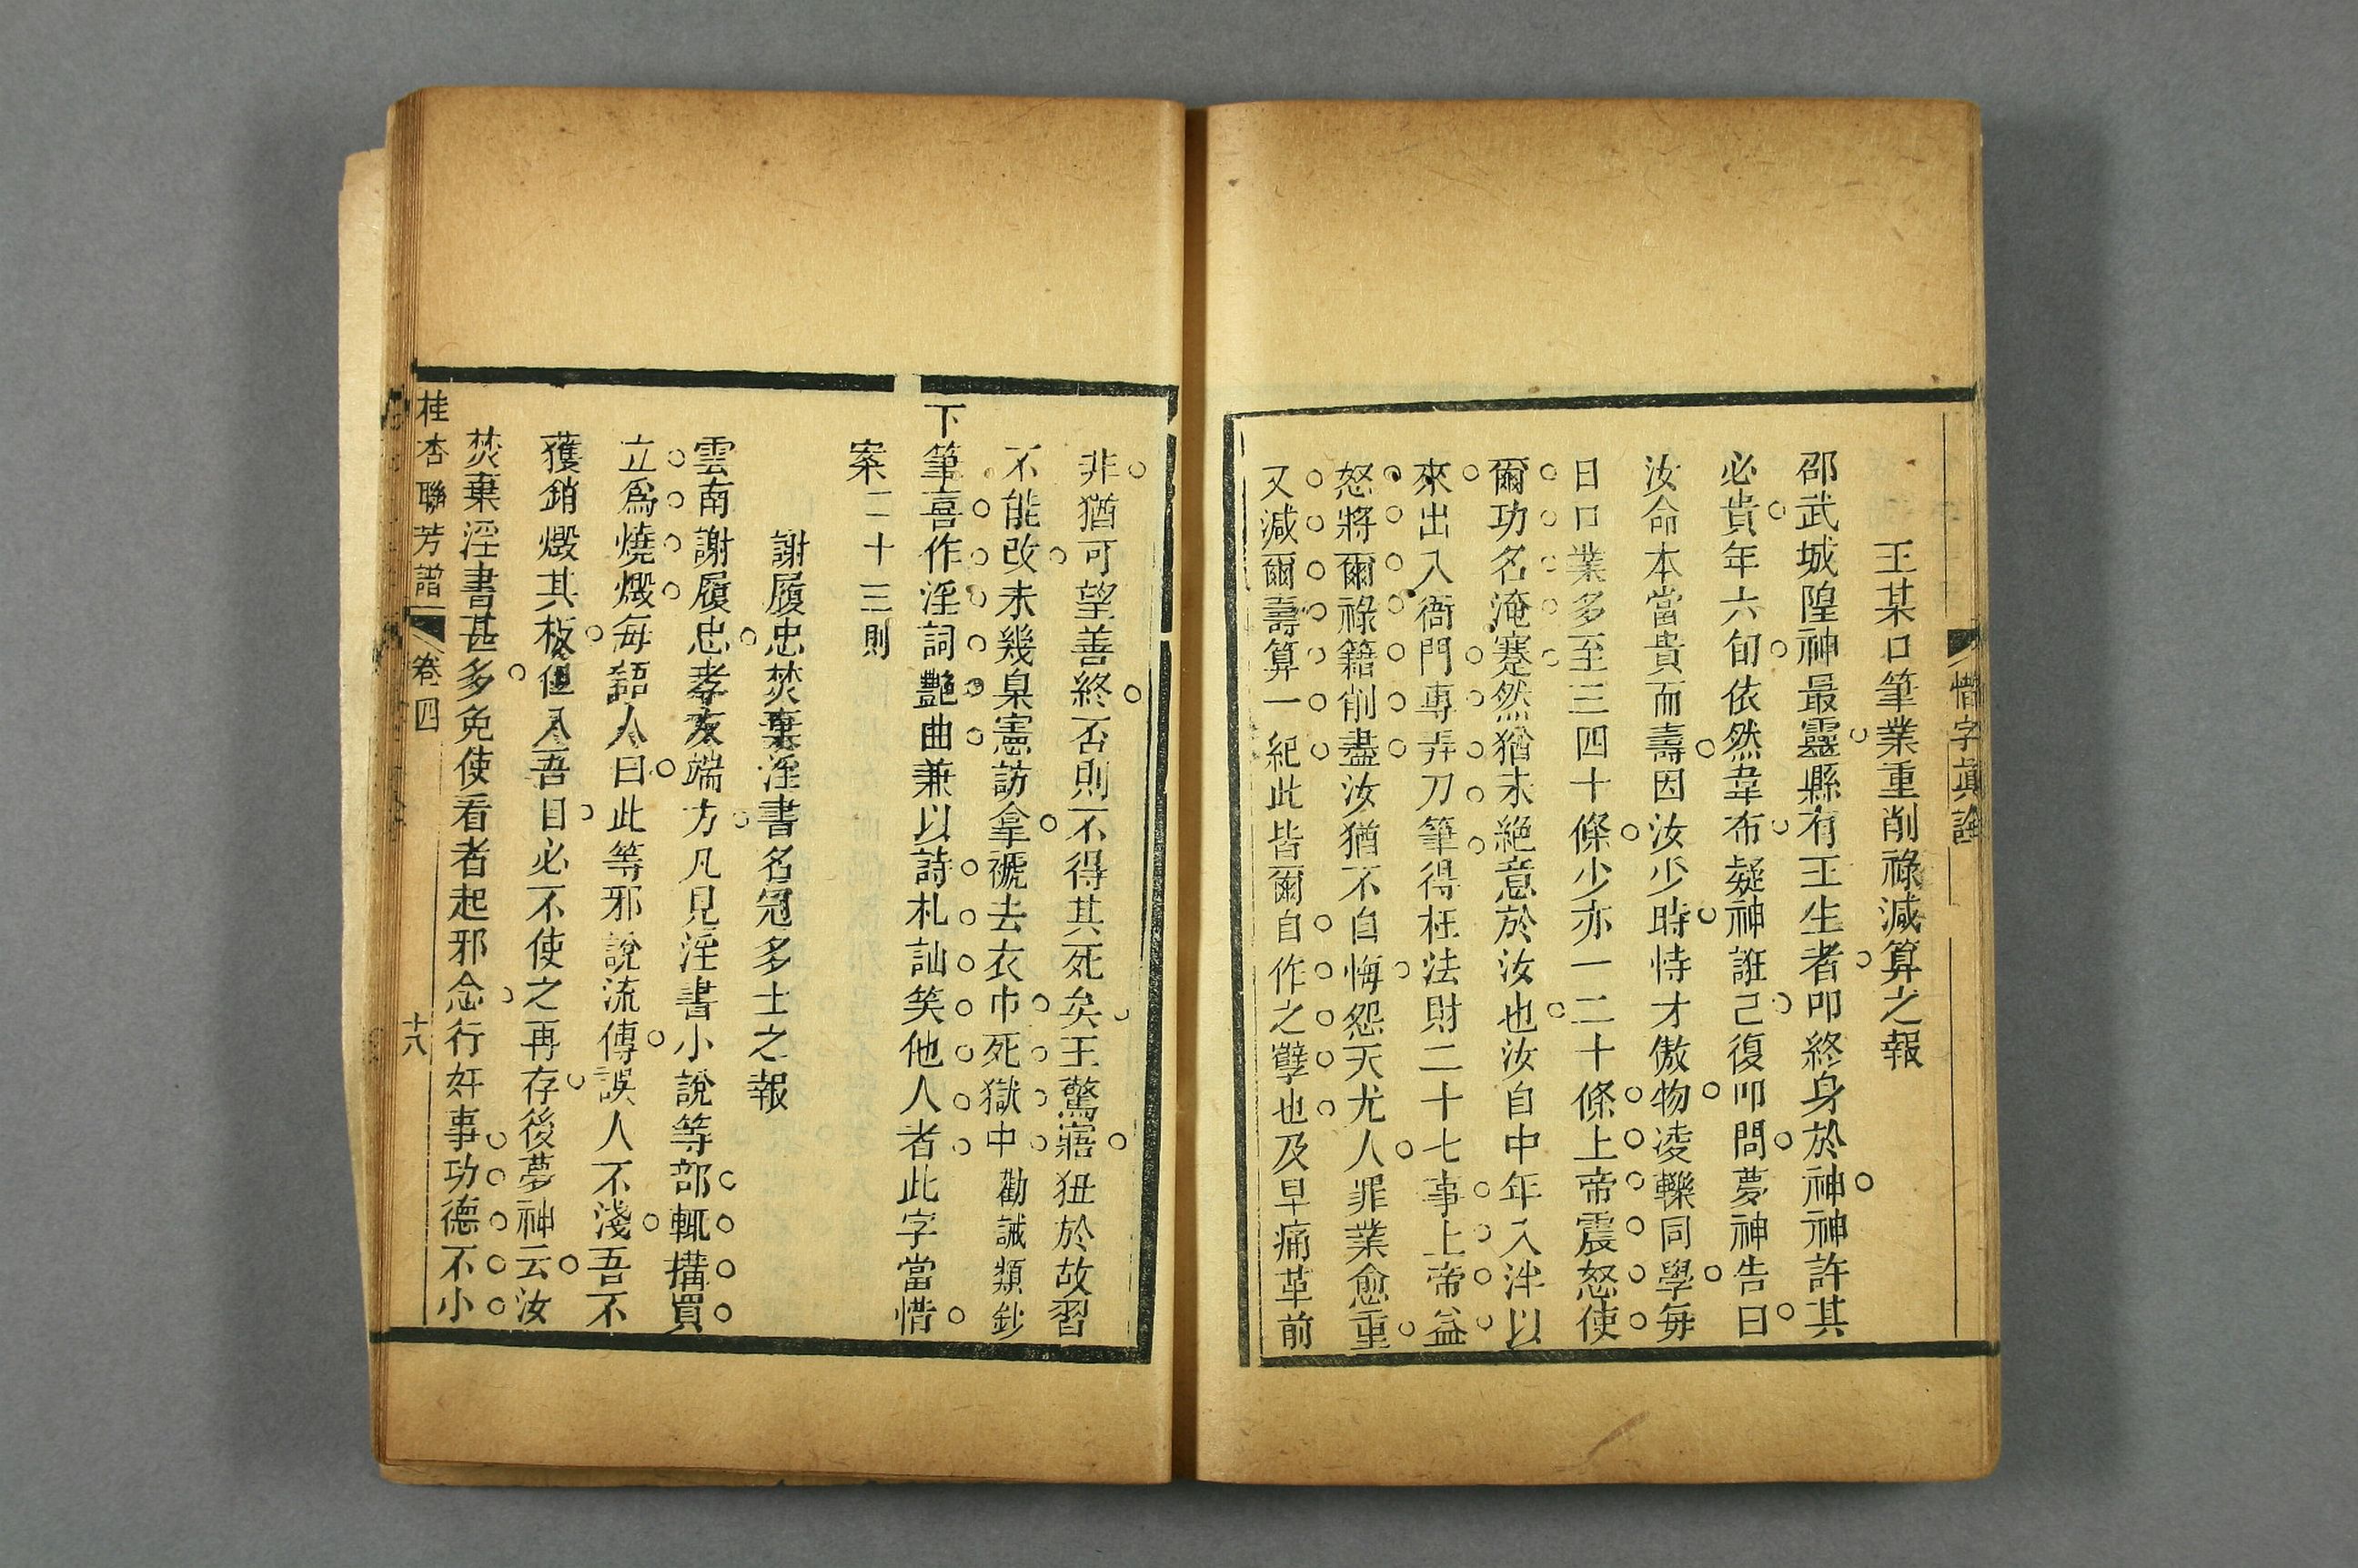 惜字眞詮
王某口筆業重削祿減算之報
邵武城隍神最靈縣有王生者叩終身於神神許其
必貴年六旬依然韋布疑神誑己復叩問夢神告曰
汝命本當貴而壽因汝少時恃才傲物凌轢同學每
日口業多至三四十條少亦一二十條上帝震怒使
爾功名淹蹇然猶未絕意於汝也汝自中年入泮以
來出入衙門專弄刀筆得枉法財二十七事上帝益
怒將爾祿籍削盡汝猶不自悔怨天尤人罪業愈重
又減爾壽算一紀此皆爾自作之孽也及早痛革前
非猶可望善終否則不得其死矣王驚寤狃於故習
不能改未幾臬憲訪拿褫去衣巾死獄中勸誡類鈔
下筆喜作淫詞艷曲兼以詩札訕笑他人者此字當惜
案二十三則
謝履忠焚棄淫書名冠多士之報
雲南謝履忠孝友端方凡見淫書小說等部輒搆買
立爲燒燬每語人曰此等邪說流傳誤人不淺吾不
獲銷燬其板但入吾目必不使之再存後夢神云汝
焚棄淫書甚多免使看者起邪念行奸事功德不小
桂杏聯芳譜 卷四 十八